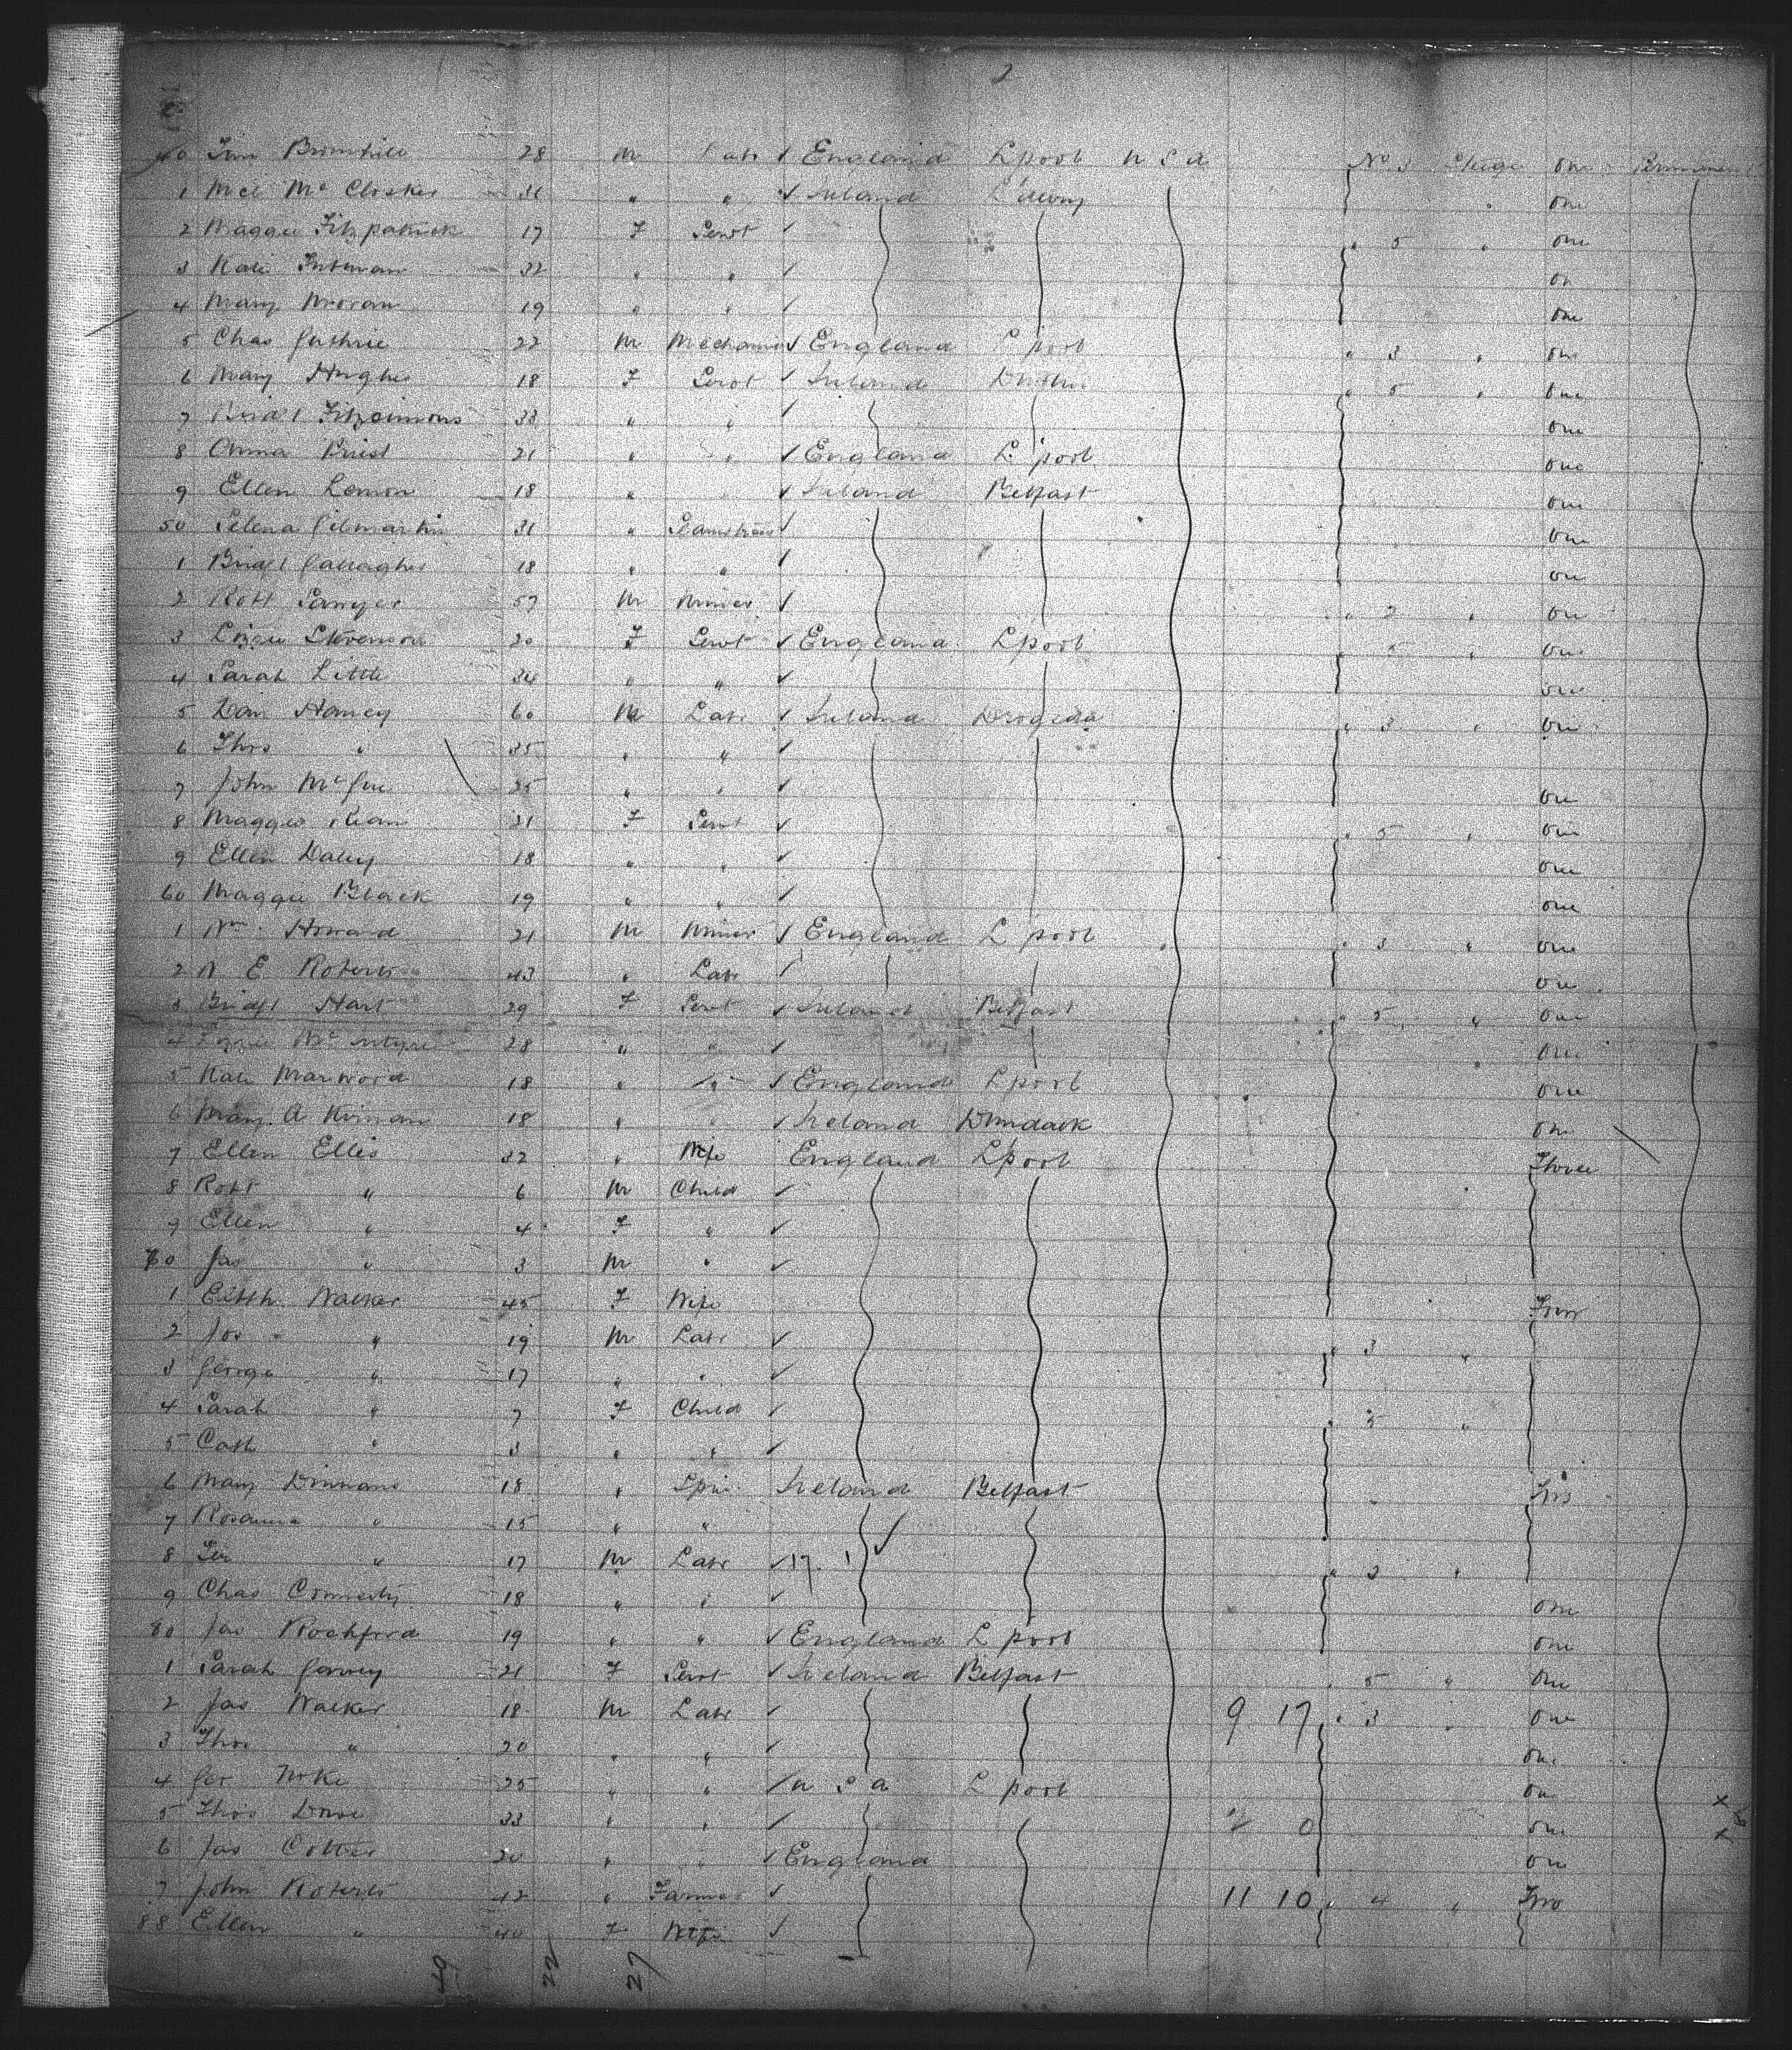 2
40 Bromhill 28 M Labr ✓ England Lpool U S A No 3 Steige One Permanent
1 Mcl Mc Closker 31 " " ✓ Ireland L'derry " One
2 Maggie Fitzpatrick 17 F Servt ✓ " 5 " One
3 Kate 32 " " ✓ On
4 Mary Moran 19 " " ✓ One
5 Chas Guthrie 22 M Mechanic ✓ England L'pool " 3 " One
6 Mary Hughes 18 F Servt ✓ Ireland " 5 " One
7 Bridt Fitzsimons 33 " " ✓ One
8 Anna Priest 21 " " ✓ England L'pool One
9 Ellen Lemon 18 " " ✓ Ireland Belfast One
50 Selena Gilmartin 31 " Seamstress ✓ One
1 Bridt Gallagher 18 " " ✓ One
2 Robt Sawyer 57 M Miner ✓ " 2 " One
3 Lizzie Stevenson 20 F Servt ✓ England Lpool " 5 " One
4 Sarah Little 34 " " ✓ One
5 Dan Haney 60 M Labr ✓ Ireland Drogeda " 3 " One
6 Thos " 35 " " ✓
7 John Mc Gee 25 " " ✓ One
8 Maggie Kean 21 F Servt ✓ " 5 " One
9 Ellen Daley 18 " " ✓ One
60 Maggie Black 19 " " ✓ One
1 Wm. Howard 21 M Miner ✓ England L'pool " 3 " One
2 E Roberts 43 " Labr ✓ One
3 Bridgt Hart 29 F Servt ✓ Ireland Belfast " 5 " One
4 Lizzie Mc Intyre 28 " " ✓ One
5 Kate Marwood 18 " " ✓ England Lpool One
6 Mary A Kirnan 18 " " ✓ Ireland Dundack One
7 Ellen Ellis 32 " Wife England L'pool Three
8 Robt " 6 M Child ✓
9 Ellen " 4 F " ✓
70 Jas " 3 M " ✓
1 Elizth Walker 45 F Wife Four
2 Jos " 19 M Labr ✓ " 3 "
3 George " 17 " " ✓
4 Sarah " 7 F Child ✓ " 5 "
5 Cath " 3 " " ✓
6 Mary Dinnans 18 " Spin Ireland Belfast Two
7 Rosanna " 15 " " ✓
8 " 17 M Labr ✓ 17. 1 " 3 "
9 Chas 18 " " ✓ One
80 Jas Rochford 19 " " ✓ England L'pool One
1 Sarah Garvey 21 F Servt ✓ Ireland Belfast " 5 " One
2 Jas Walker 18 M Labr ✓ 9 17 " 3 " One
3 Thos " 20 " " ✓ One
4 25 " " ✓ U S A L'pool One
5 Thos 33 " " ✓ 0 One
6 Jas Cotter 20 " " ✓ England One
7 John Roberts 42 " Farmer ✓ 11 10 " 4 " Two
88 Ellen " 40 F Wife ✓
49 22 27